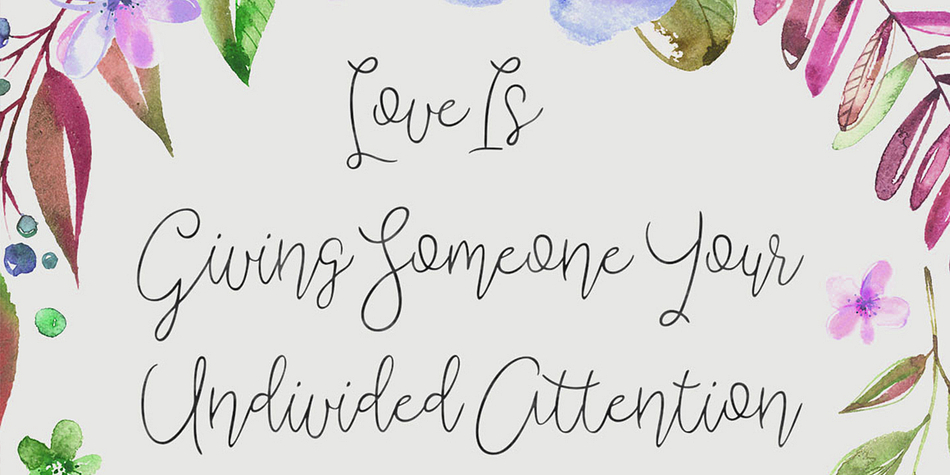 Love Is
Giving Someone Your
Undivided Attention